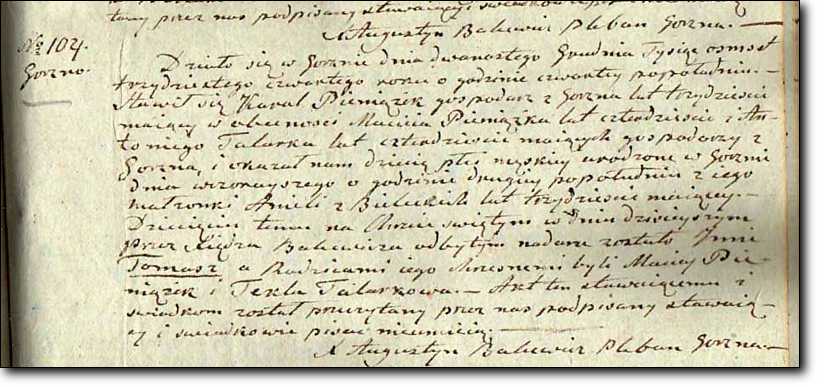 tany przez nas podpisany stawający i świadkowie
X Augustyn Balewicz Pleban Gorzna.—
No 104.
Gorzno.
Działo się w Gorznie dnia dwunastego Grudnia Tysiąc osmset
trzydziestego czwartego roku o godzinie czwartey popołudniu.—
Stawił się Karol Pieniążek gospodarz z Gorzna lat trzydzieści
maiący w obecności Macieia Pieniążka lat czterdzieści i An-
toniego Talarka lat czterdzieści maiących gospodarzy z
Gorzna, i okazał nam dziecię płci męskiey urodzone w Gorznie
dnia wczorayszego o godzinie drugiey popołudniu z iego
małżonki Anieli z Bieleckich lat trzydzieści maiącey.—
Dziecięciu temu na Chrzcie świętym w dniu dzisieyszym
przez Xiędza Balewicza odbytym nadane zostało Imie
Tomasz a Rodzicami iego chrzesnemi byli Maciey Pie-
niążek i Tekla Talarkowa.— Akt ten stawaiącemu i
świadkom został przeczytany przez nas podpisany stawaią-
cy i świadkowie pisać nieumieią.—
X Augustyn Balewicz Pleban Gorzna.—